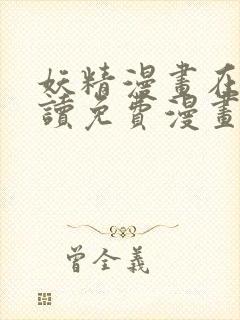 妖精漫畫在
讀免費漫畫
曾全義